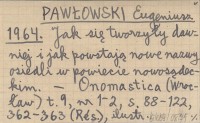 PAWŁOWSKI Eugeniusz
1964. Jak się tworzyły daw-
niej i jak powstają nowe nazwy
osiedli w powiecie nowosądec-
kim. — Onomastica (Wroc-
ław) t. 9, nr 1-2, s. 88-122,
362-363 (Rés.), ilustr.